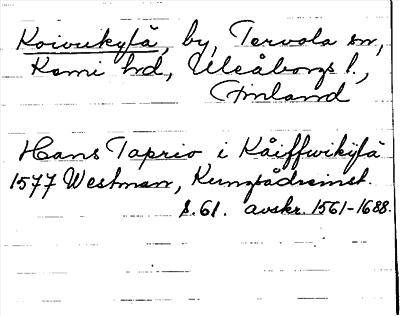 Koivukylä, by, Tervola sn,
Kemi hd, Uleåborgs l.,
Finland
Hans Taprio i Kåiffwikÿlä
1577 Westman, Kungsådreinst.
s. 61. avskr. 1561-1688.